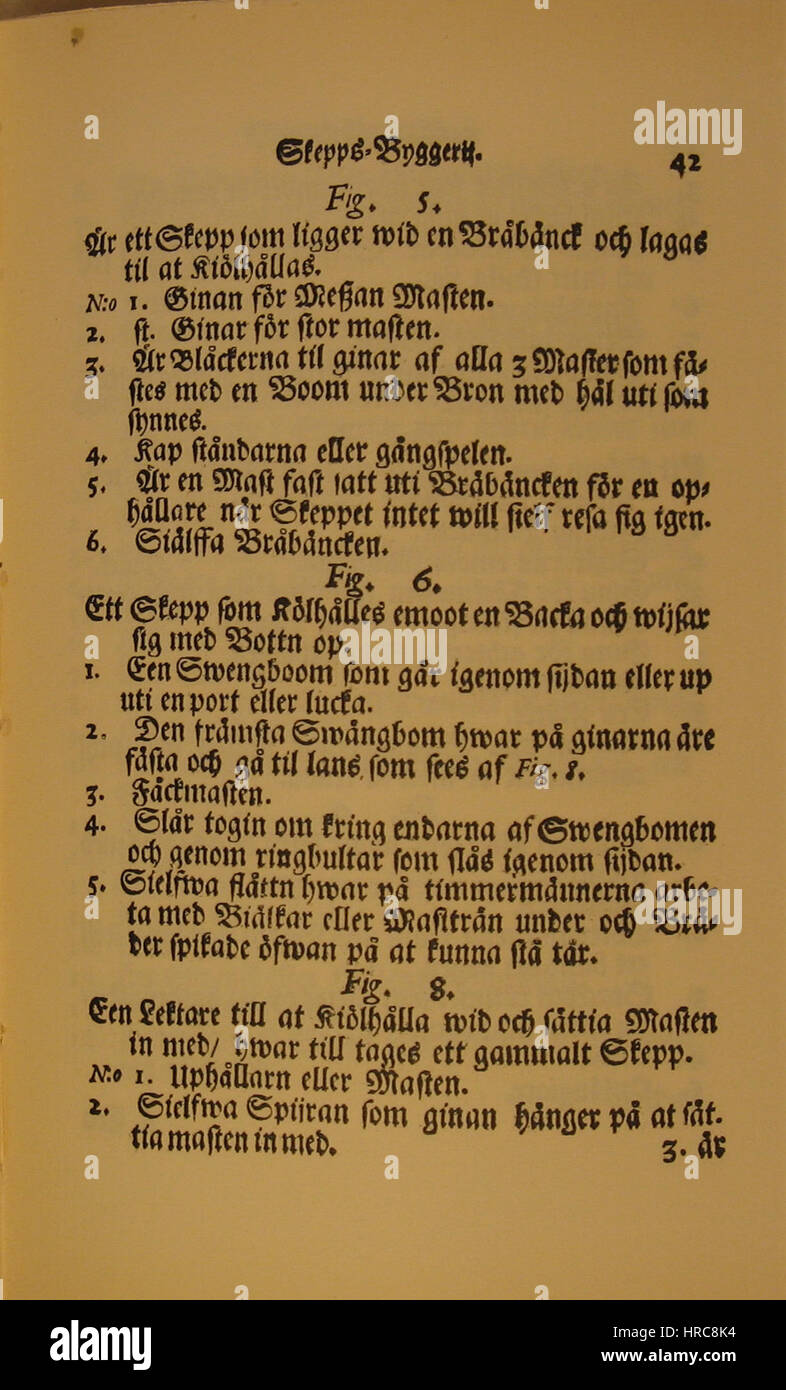 Skepps-Byggerij.
42
Fig. 5.
Är ett Skepp som ligger wid en Bråbänck och lagas
til at Kiölhållas.
N:o 1. Ginan för Meßan Masten.
2. st. Ginar för stor masten.
3. Är Blåckerna til ginar af alla 3 Master som fä-
stes med en Boom under Bron med hål uti som
synnes.
4. Kap ståndarna eller gångspelen.
5. Är en Mast fast satt uti Bråbäncken för en op-
hållare når Skeppet intet will sielf resa sig igen.
6. Siälffa Bråbäncken.
Fig. 6.
Ett Skepp som Kölhålles emoot en Backa och wijsar
sig med Bottn op.
1. Een Swengboom som går igenom sijdan eller up
uti en port eller lucka.
2. Den främsta Swängbom hwar på ginarna äre
fästa och gå til lans som sees af Fig. 8.
3. Fäckmasten.
4. Slår togin om kring endarna af Swengbomen
och genom ringbultar som slås igenom sijdan.
5. Sielfwa flättn hwar på timmermännerna arbe-
ta med Biälkar eller Mastträn under och Brä-
der spikade öfwan på at kunna stå tär.
Fig. 8.
Een Lektare till at Kiölhålla wid och sättia Masten
in med/ hwar till tages ett gammalt Skepp.
N:o 1. Uphållarn eller Masten.
2. Sielfwa Spijran som ginan hänger på at sät-
tia masten in med.
3. är
alamy
a
alamy stock photo
HRC8K4
www.alamy.com